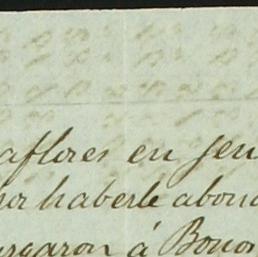 aflores en Jen
por haberle abona
argaron á Bono